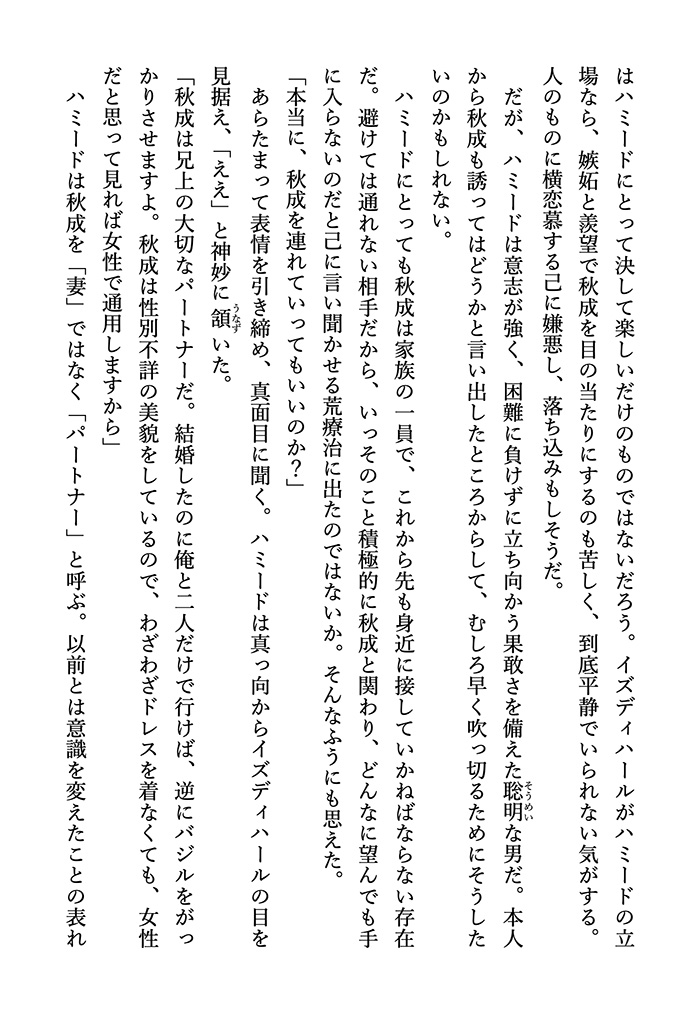 はハミードにとって決して楽しいだけのものではないだろう。イズディハールがハミードの立
場なら、嫉妬と羨望で秋成を目の当たりにするのも苦しく、到底平静でいられない気がする。
人のものに横恋慕する己に嫌悪し、落ち込みもしそうだ。
だが、ハミードは意志が強く、困難に負けずに立ち向かう果敢さを備えた聡明そうめいな男だ。本人
から秋成も誘ってはどうかと言い出したところからして、むしろ早く吹っ切るためにそうした
いのかもしれない。
ハミードにとっても秋成は家族の一員で、これから先も身近に接していかねばならない存在
だ。避けては通れない相手だから、いっそのこと積極的に秋成と関わり、どんなに望んでも手
に入らないのだと己に言い聞かせる荒療治に出たのではないか。そんなふうにも思えた。
「本当に、秋成を連れていってもいいのか？」
あらたまって表情を引き締め、真面目に聞く。ハミードは真っ向からイズディハールの目を
見据え、「ええ」と神妙に頷うなずいた。
「秋成は兄上の大切なパートナーだ。結婚したのに俺と二人だけで行けば、逆にバジルをがっ
かりさせますよ。秋成は性別不詳の美貌をしているので、わざわざドレスを着なくても、女性
だと思って見れば女性で通用しますから」
ハミードは秋成を「妻」ではなく「パートナー」と呼ぶ。以前とは意識を変えたことの表れ